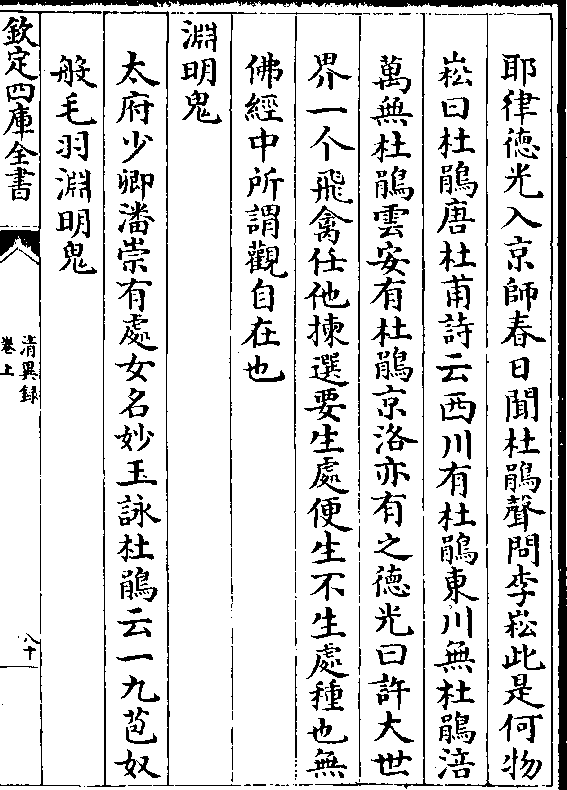 耶律德光入京師春日聞杜鵑聲問李崧此是何物
崧曰杜鵑唐杜甫詩云西川有杜鵑東川無杜鵑涪
萬無杜鵑雲安有杜鵑京洛亦有之德光曰許大世
界一个飛禽任他揀選要生處便生不生處種也無
佛經中所謂觀自在也
淵明鬼
太府少卿潘崇有處女名妙玉詠杜鵑云一九苞奴
般毛羽淵明鬼
欽定四庫全書
清異録
卷上
八十